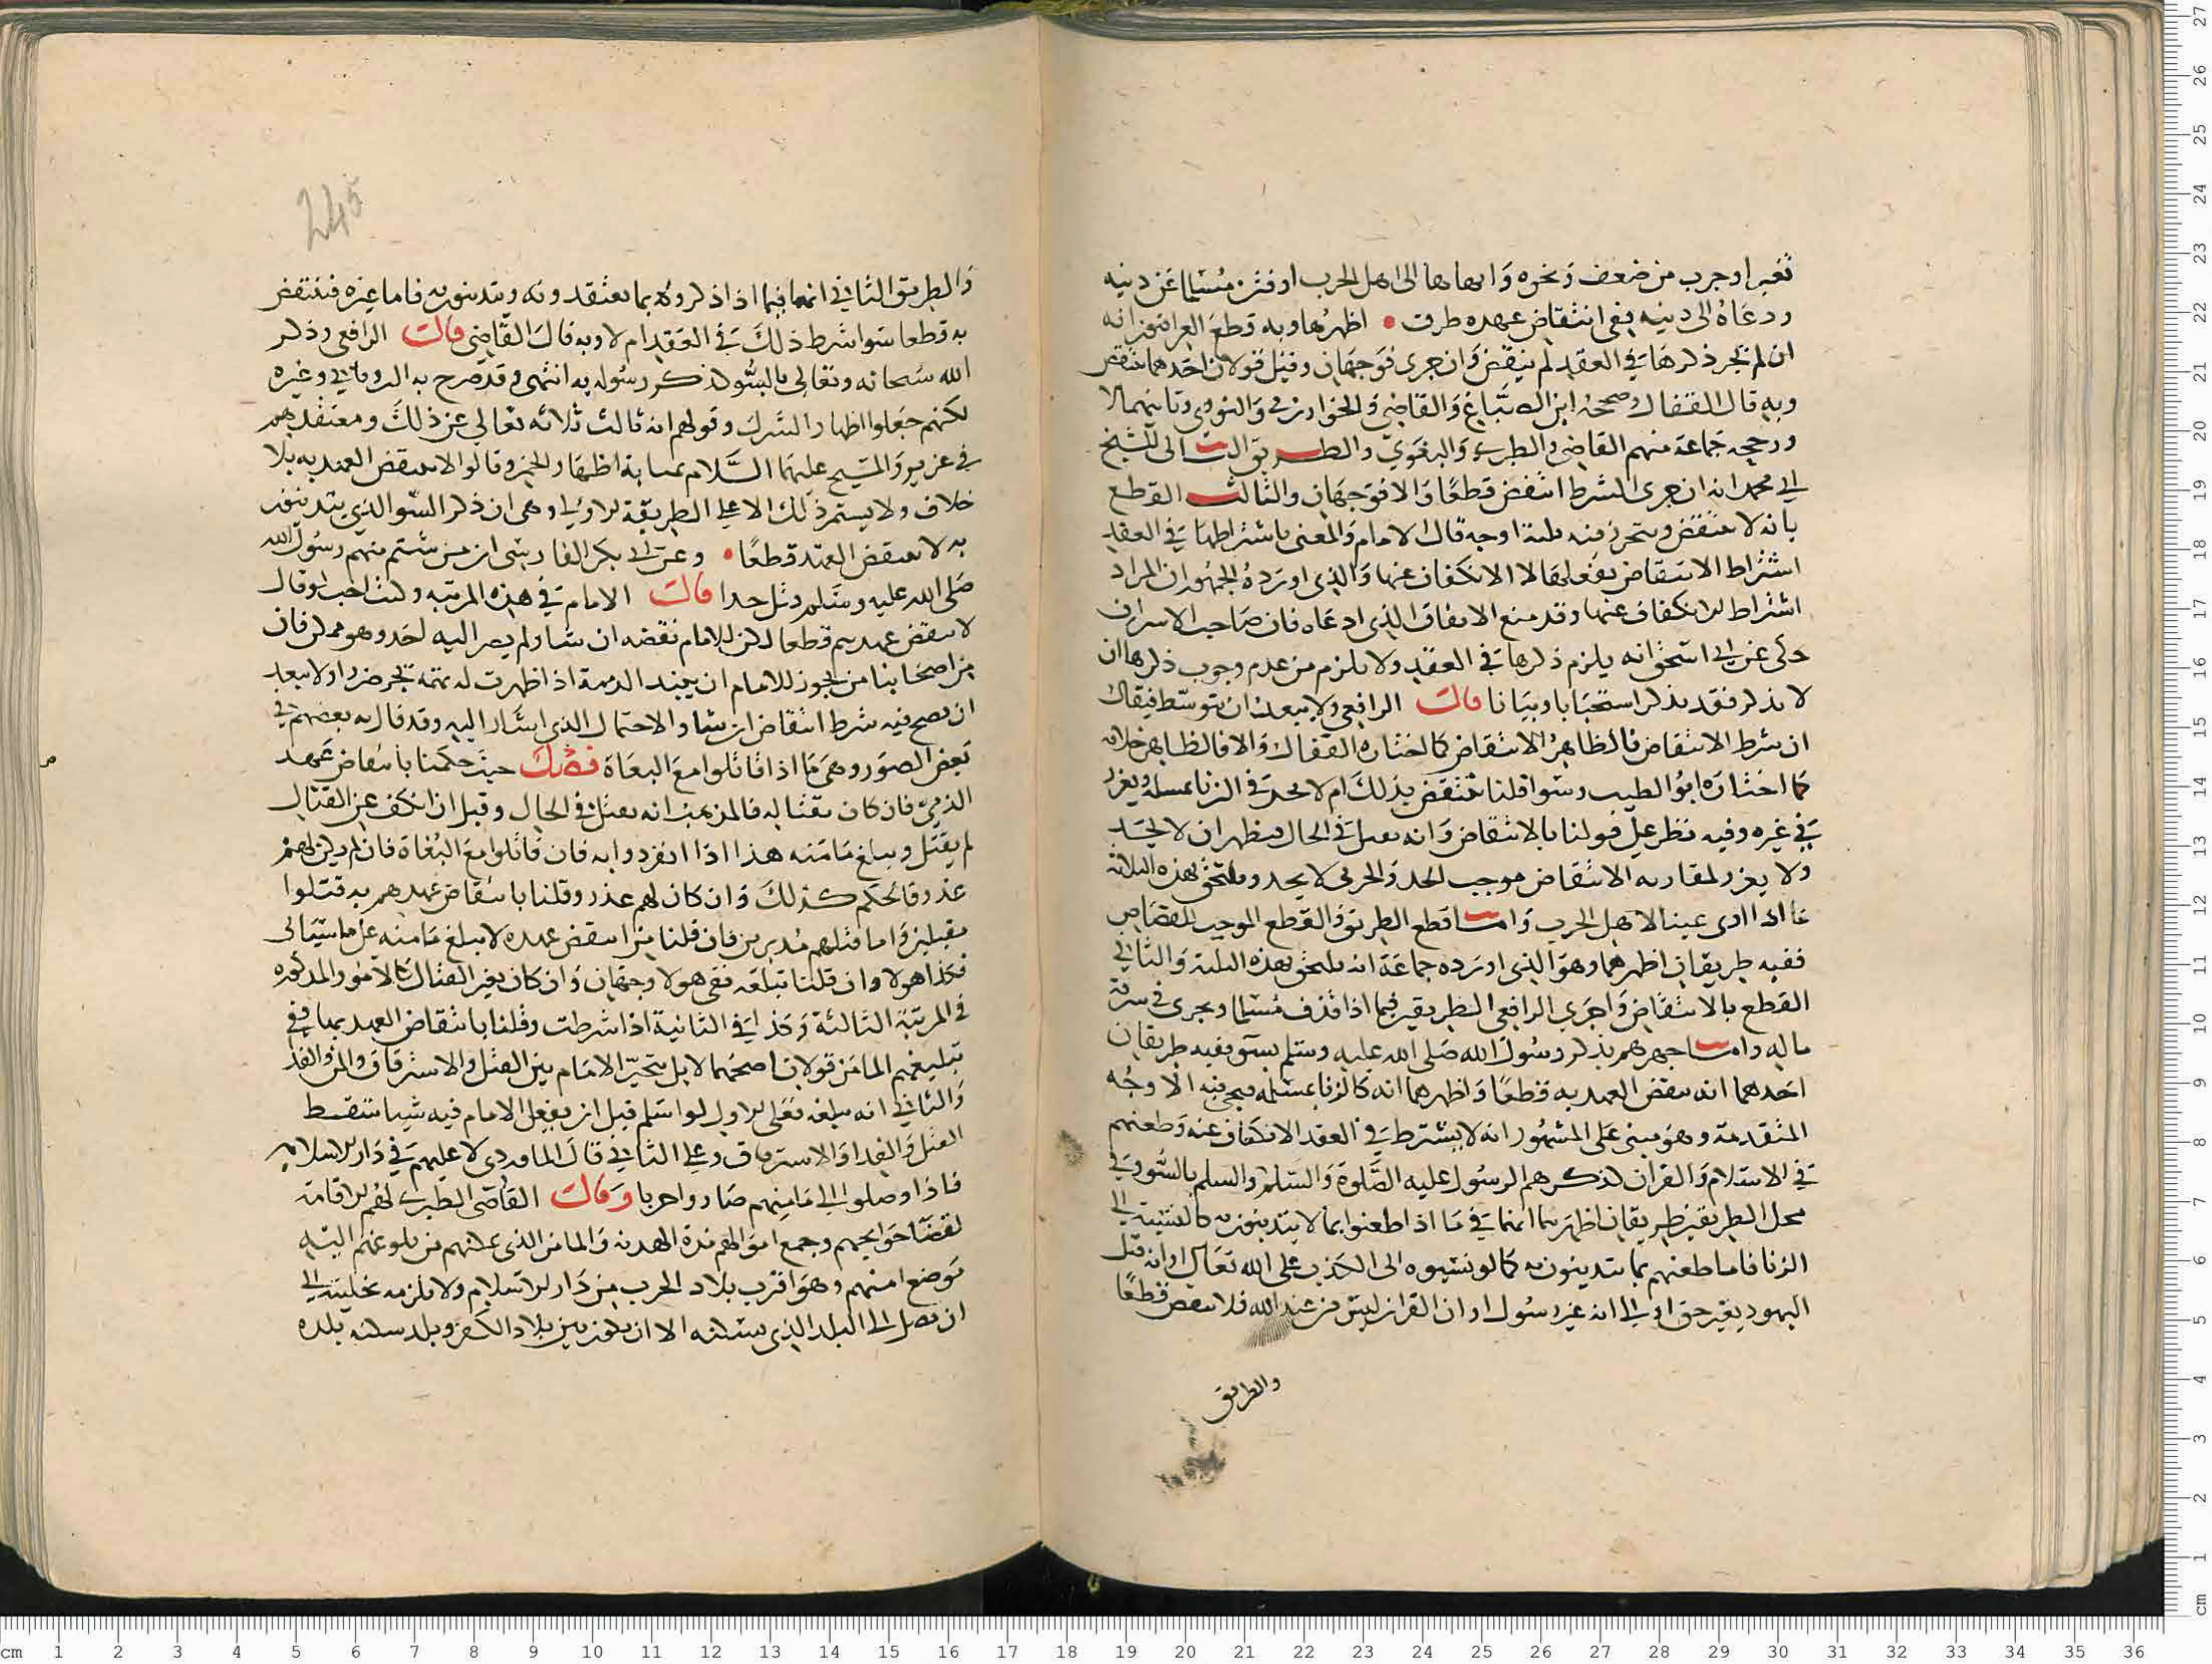 ثغر او حرب من ضعف ونحوه وانهاها الى اهل الحرب او فتن مسلما عن دينه
ودعاه الى دينه ففي انتقاض عهده طرق اظهرها وبه قطع العراقيون انه
ان لم يجر ذكرها في العقد لم ينقض وان جرى فوجهان وقيل قولان احدهما ينتقض
وبه قال القفال وصححه ابن الصباغ والقاضي والخوارزمي والنووي وثانيهما لا
ورجحه جماعة منهم القاضي والطبري والبغوي والطريق الثاني للشيخ
ابي محمد انه ان جرى الشرط انتقض قطعا والا فوجهان والثالث القطع
بانه لا ينتقض ويتحرر منه ثلثة اوجه قال الامام والمعنى باشتراطها في العقد
اشتراط الانتقاض بفعلها لا الانكفاف عنها والذي اورده الجمهور ان المراد
اشتراط الانكفاف عنها وقد منع الاتفاق الذي ادعاه فان صاحب الاسراف
حكى عن ابي اسحق انه يلزم ذكرها في العقد ولا يلزم من عدم وجوب ذكرها ان
لا يذكر فقد يذكر استحبابا وبيانا قالت الرافعي ولا يبعد ان يتوسط فيقال
ان شرط الانتقاض فالظاهر الانتقاض كما اختاره القفال والا فالظاهر خلافه
كما اختاره ابو الطيب وسوا قلنا ينتقض بذلك ام لا يحد في الزنا بمسلمة ويعزر
في غيره وفيه نظر على قولنا بالانتقاض وانه يقتل في الحال فيظهر ان لا يحد
ولا يعزر لمقارنه الانتقاض موجب الحد والحربي لا يحد ويلتحق بهذه الثلاثة
ما اذا اوى عينا لاهل الحرب واما قطع الطريق والقطع الموجب للقصاص
ففيه طريقان اظهرهما وهو الذي اورده جماعة انه يلحق بهذه الثلثة والثاني
القطع بالانتقاض واجرى الرافعي الطريقين فيما اذا قذف مسلما ويجرى في سرقة
ماله واما جهرهم بذكر رسول الله صلى الله عليه وسلم بسو ففيه طريقان
احدهما انه ينقض العهد به قطعا واظهرهما انه كالزنا بمسلمة فيجي فيه الاوجه
المتقدمة وهو مبني على المشهور انه لا يشترط في العقد الانكفاف عنه وطعنهم
في الاسلام والقران كذكرهم الرسول عليه الصلوة والسلم والسلم بالسو وفي
محل الطريقين طريقان اظهرهما انهما في ما اذا طعنوا بما لا يتدينون به كالنسبة الى
الزنا فاما طعنهم بما يتدينون به كما لو نسبوه الى الكذب على الله تعالى او انه قتل
اليهود بغير حق او الى انه غير رسول او ان القران ليس من عند الله فلا ينقض قطعا
والطريق
245
والطريق الثاني انهما فيما اذا ذكروه بما يعتقدونه ويتدينون به فاما غيره فينتقض
به قطعا سوا شرط ذلك في العقد ام لا وبه قال القاضي قالت الرافعي وذكر
الله سبحانه وتعالى بالسو كذكر رسوله به انتهى وقد صرح به الروياني وغيره
لكنهم جعلوا اظهار الشرك وقولهم انه ثالث ثلاثه تعالى عن ذلك ومعتقدهم
في عزير والمسيح عليهما السلام بمثابة اظهار الخمر وقالوا لا ينتقض العهد به بلا
خلاف ولا يستمر ذلك الا على الطريقة الاولى وهى ان ذكر السو الذي يتدينون
به لا ينقض العهد قطعا وعن ابي بكر الفارسي ان من شتم منهم رسول الله
صلى الله عليه وسلم قتل حدا قالت الامام في هذه المرتبه وكنت احب لو قال
لا ينقض عهدهم قطعا لكن للامام نقضه ان شا ولم يصر اليه احد وهو ممكن فان
من اصحابنا من يجوز للامام ان ينبذ الذمة اذا ظهرت له تهمة تجر ضررا ولا يبعد
ان يصح فيه شرط انتقاض ان شا والاحتمال الذي اشار اليه وقد قال به بعضهم في
بعض الصور وهى ما اذا قاتلوا مع البغاة فصل حيث حكمنا بانتقاض عهد
الذمي فان كان بقتاله فالمذهب انه يقتل في الحال وقيل ان انكف عن القتال
لم يقتل ويبلغ مامنه هذا اذا انفردوا به فان قاتلوا مع البغاة فان لم يكن لهم
عذر فالحكم كذلك وان كان لهم عذر وقلنا بانتقاض عهدهم به قتلوا
مقبلين واما قتلهم مدبرين فان قلنا من انتقض عهده لا يبلغ مامنه على ما سياتى
فكذا هولا وان قلنا تبلغه ففي هولا وجهان وان كان بغير القتال كالامور المذكوره
في المرتبة الثالثة وكذا في الثانية اذا شرطت وقلنا بانتقاض العهد بها ففي
تبليغهم المامن قولان اصحهما لا بل يتخير الامام بين القتل والاسترقاق والمن والفدا
والثاني انه يبلغه فعلى الاول لو اسلم قبل ان يفعل الامام فيه شيا سقط
القتل والفدا والاسترقاق وعلى الثاني قال الماوردي لا عليهم في دار الاسلام
فاذا وصلوا الى مامنهم صاروا حربا وقالت القاضي الطبري لهم الاقامة
لقضا حوايجهم وجمع اموالهم مدة الهدنة والمامن الذي يمكنهم من بلوغهم اليه
موضع امنهم وهو اقرب بلاد الحرب من دار الاسلام ولا يلزمه تخليته الى
ان يصل الى البلد الذي يسكنه الا ان يكون بين بلاد الكفر وبلد سكنه بلده